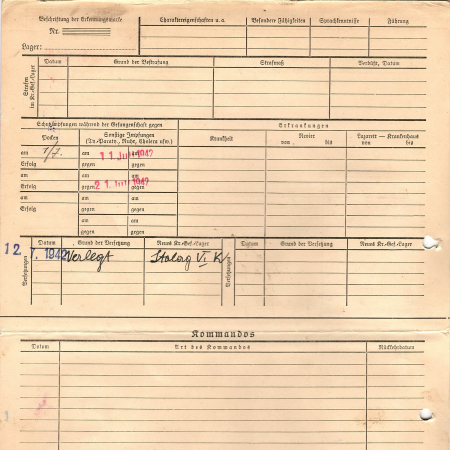 Beschriftung der Erkennungsmarke
Nr.
Lager:
Charaktereigenschaften u.a.
Besondere Fähigkeiten
Sprachkenntnisse
Führung
Strafen im Kr.-Gef.-Lager
Datum
Grund der Bestrafung
Strafmaß
Verbüßt, Datum
Schutzimpfungen während der Gefangenschaft gegen
Erkrankungen
Pocken
Sonstige Impfungen
(Ty.-Paratyph., Ruhr, Cholera usw.)
Krankheit
Revier
von bis
Lazarett — Krankenhaus
von bis
am am 11. Juli 1942
Erfolg gegen gegen
am am 21. Juli 1942
Erfolg gegen gegen
am am am
Erfolg gegen gegen
am am
gegen gegen
Versetzungen
Datum
Grund der Versetzung
Neues Kr.-Gef.-Lager
Versetzungen
Datum
Grund der Versetzung
Neues Kr.-Gef.-Lager
12. 7. 1942 Verlegt Stalag VI K
Kommandos
Datum
Art des Kommandos
Rückkehrdatum